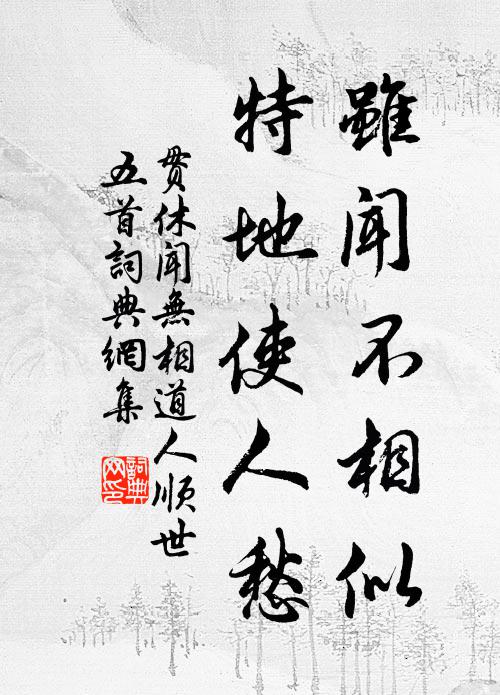 雖聞不相似
特地使人愁
貫休聞無相道人順世
五首詞典網集
詞典
网印